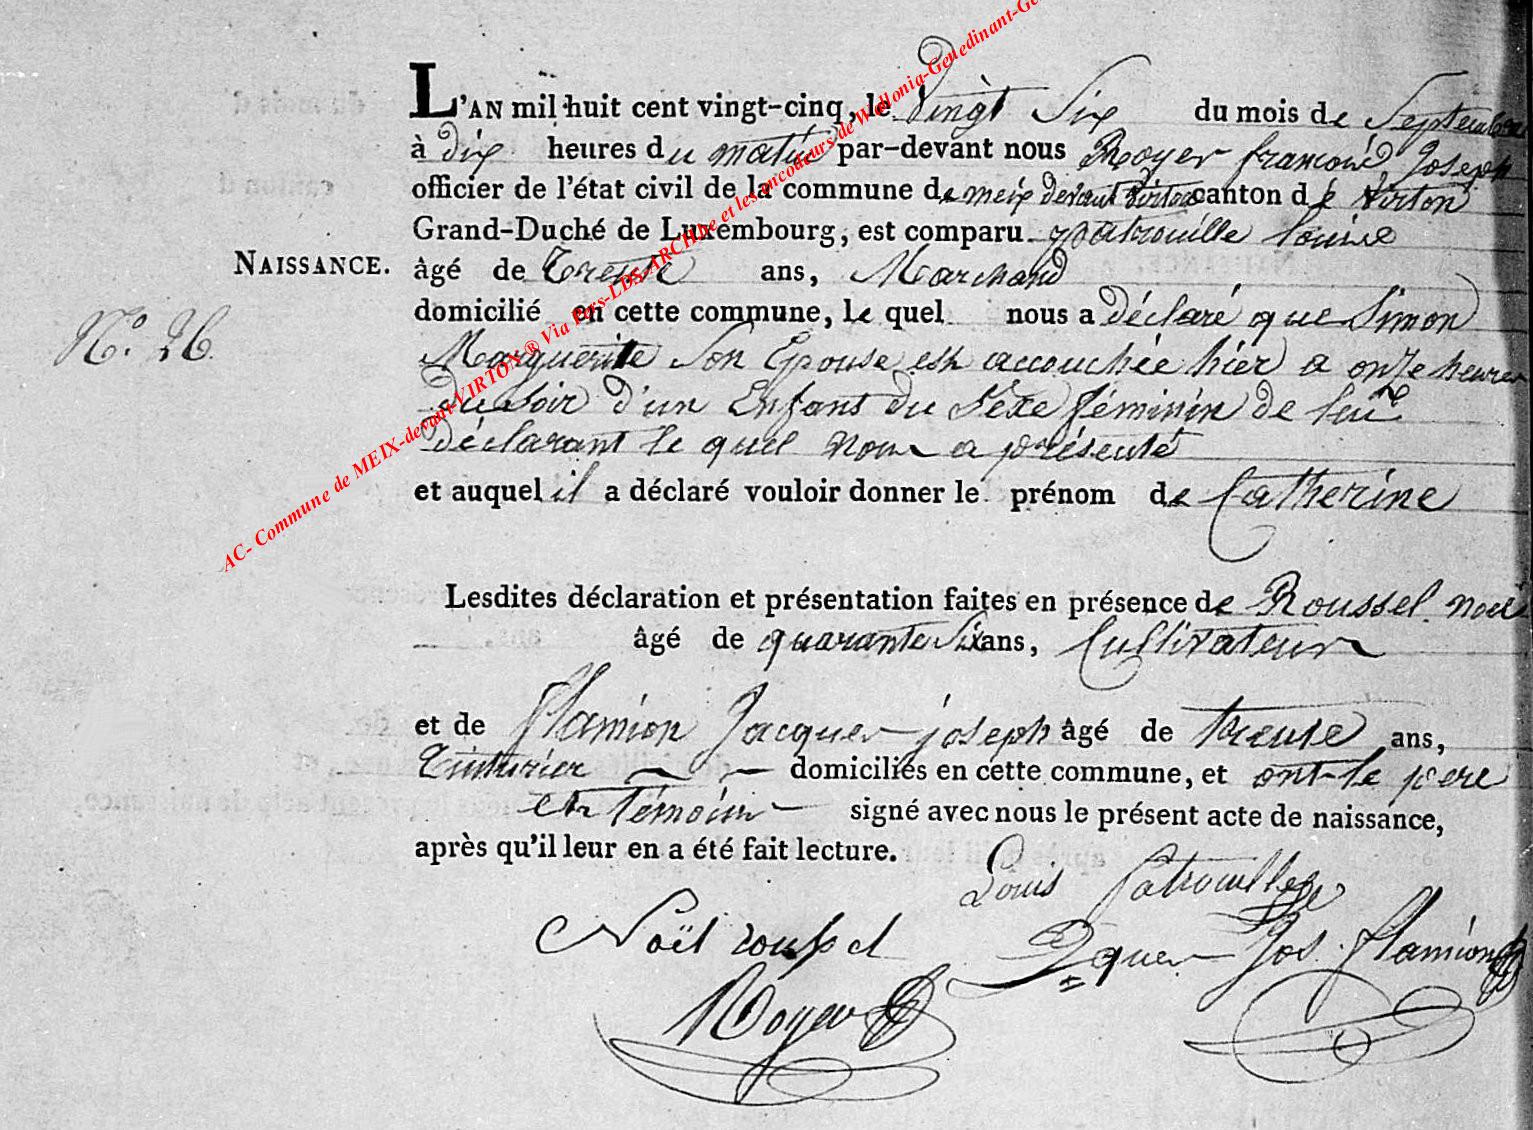 L'AN mil huit cent vingt-cinq, le vingt Six du mois de Septembre
à dix heures du matin par-devant nous Royer francois Joseph
officier de l'état civil de la commune de meix devant virton canton de Virton
Grand-Duché de Luxembourg, est comparu patrouille Louis
NAISSANCE.
âgé de Trente ans, Marchand
domicilié en cette commune, le quel nous a déclaré que Simon
N.º 26.
Marguerite Son Epouse est accouchée hier a onze heures
du Soir d'un Enfant du Sexe féminin de lui
déclarant le quel nous a présenté
et auquel il a déclaré vouloir donner le prénom de Catherine
Lesdites déclaration et présentation faites en présence de Roussel noel
âgé de quarante Six ans, Cultivateur
et de flamion Jacques joseph âgé de trente ans,
Tinturier domiciliés en cette commune, et ont le pere
et Témoins signé avec nous le présent acte de naissance,
après qu'il leur en a été fait lecture.
Louis Patrouille
Noël roussel Jos. flamion
Royer
AC- Commune de MEIX-devant-VIRTON ® Via Pers-LDS-ARCH et les encodeurs de Wallonia-Genedinant-Ge